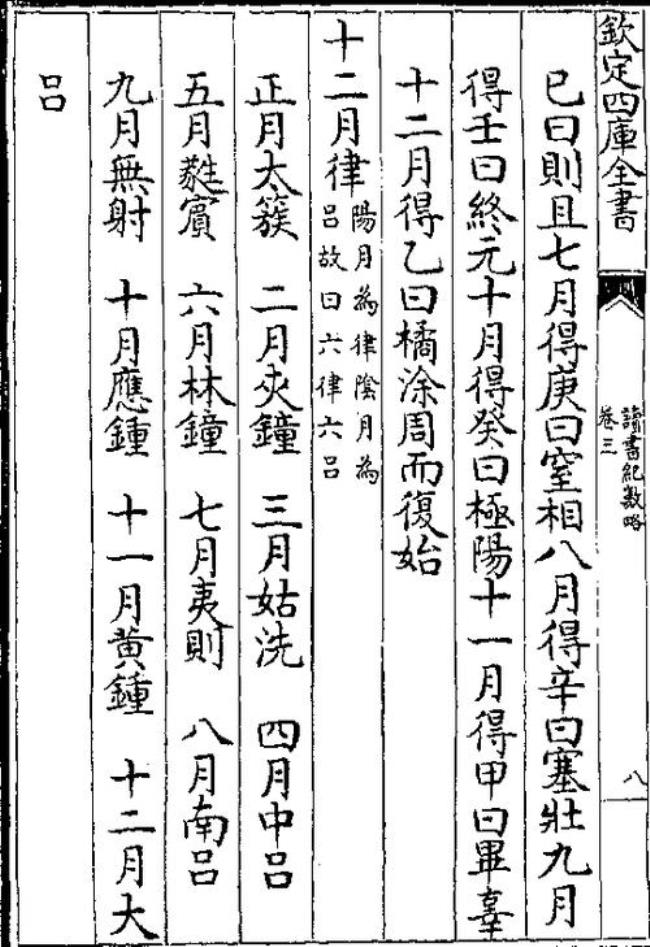 欽定四庫全書
讀書紀數略
卷三
八
已曰則且七月得庚曰窒相八月得辛曰塞壯九月
得壬曰終元十月得癸曰極陽十一月得甲曰畢辜
十二月得乙曰橘涂周而復始
十二月律陽月為律陰月為
呂故曰六律六呂
正月太簇 二月夾鐘 三月姑洗 四月中呂
五月蕤賓 六月林鐘 七月夷則 八月南呂
九月無射 十月應鍾 十一月黃鍾 十二月大
呂